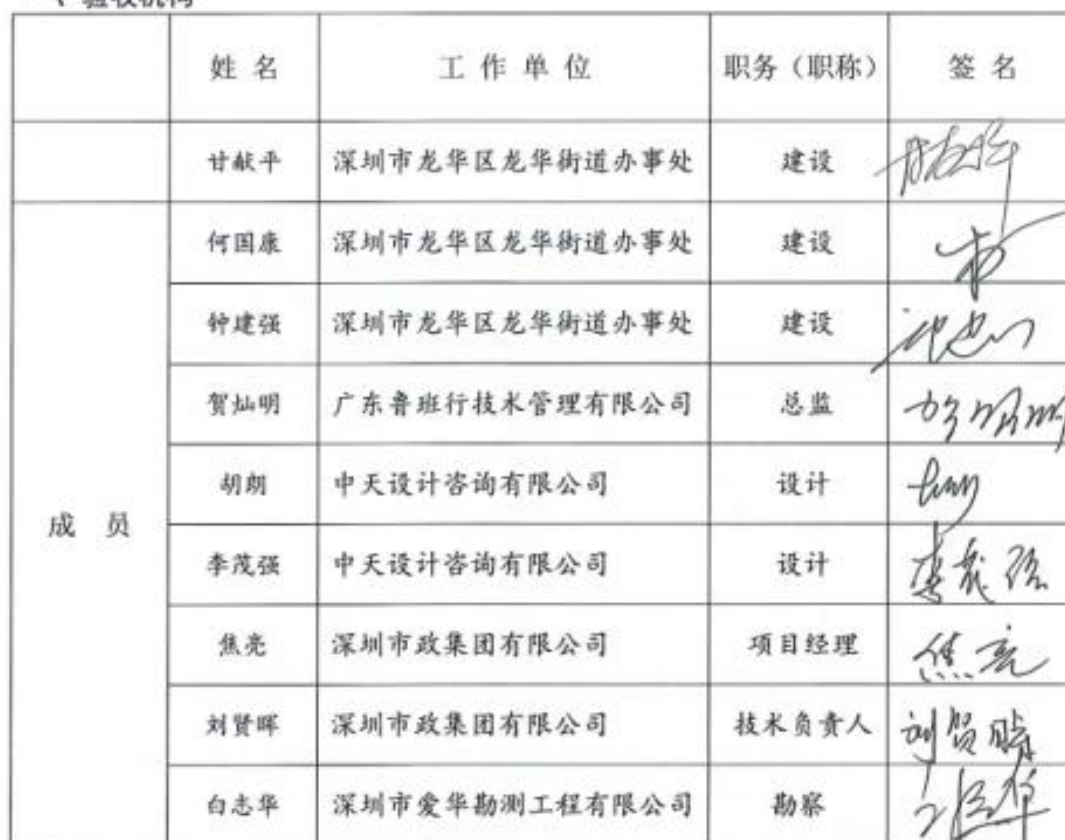 验收机构
姓 名 工 作 单 位 职务（职称） 签 名
甘献平 深圳市龙华区龙华街道办事处 建设
何国康 深圳市龙华区龙华街道办事处 建设
钟建强 深圳市龙华区龙华街道办事处 建设
贺灿明 广东鲁班行技术管理有限公司 总监
胡朗 中天设计咨询有限公司 设计
成 员
李茂强 中天设计咨询有限公司 设计 李茂强
焦亮 深圳市政集团有限公司 项目经理 焦亮
刘贤晖 深圳市政集团有限公司 技术负责人
白志华 深圳市爱华勘测工程有限公司 勘察